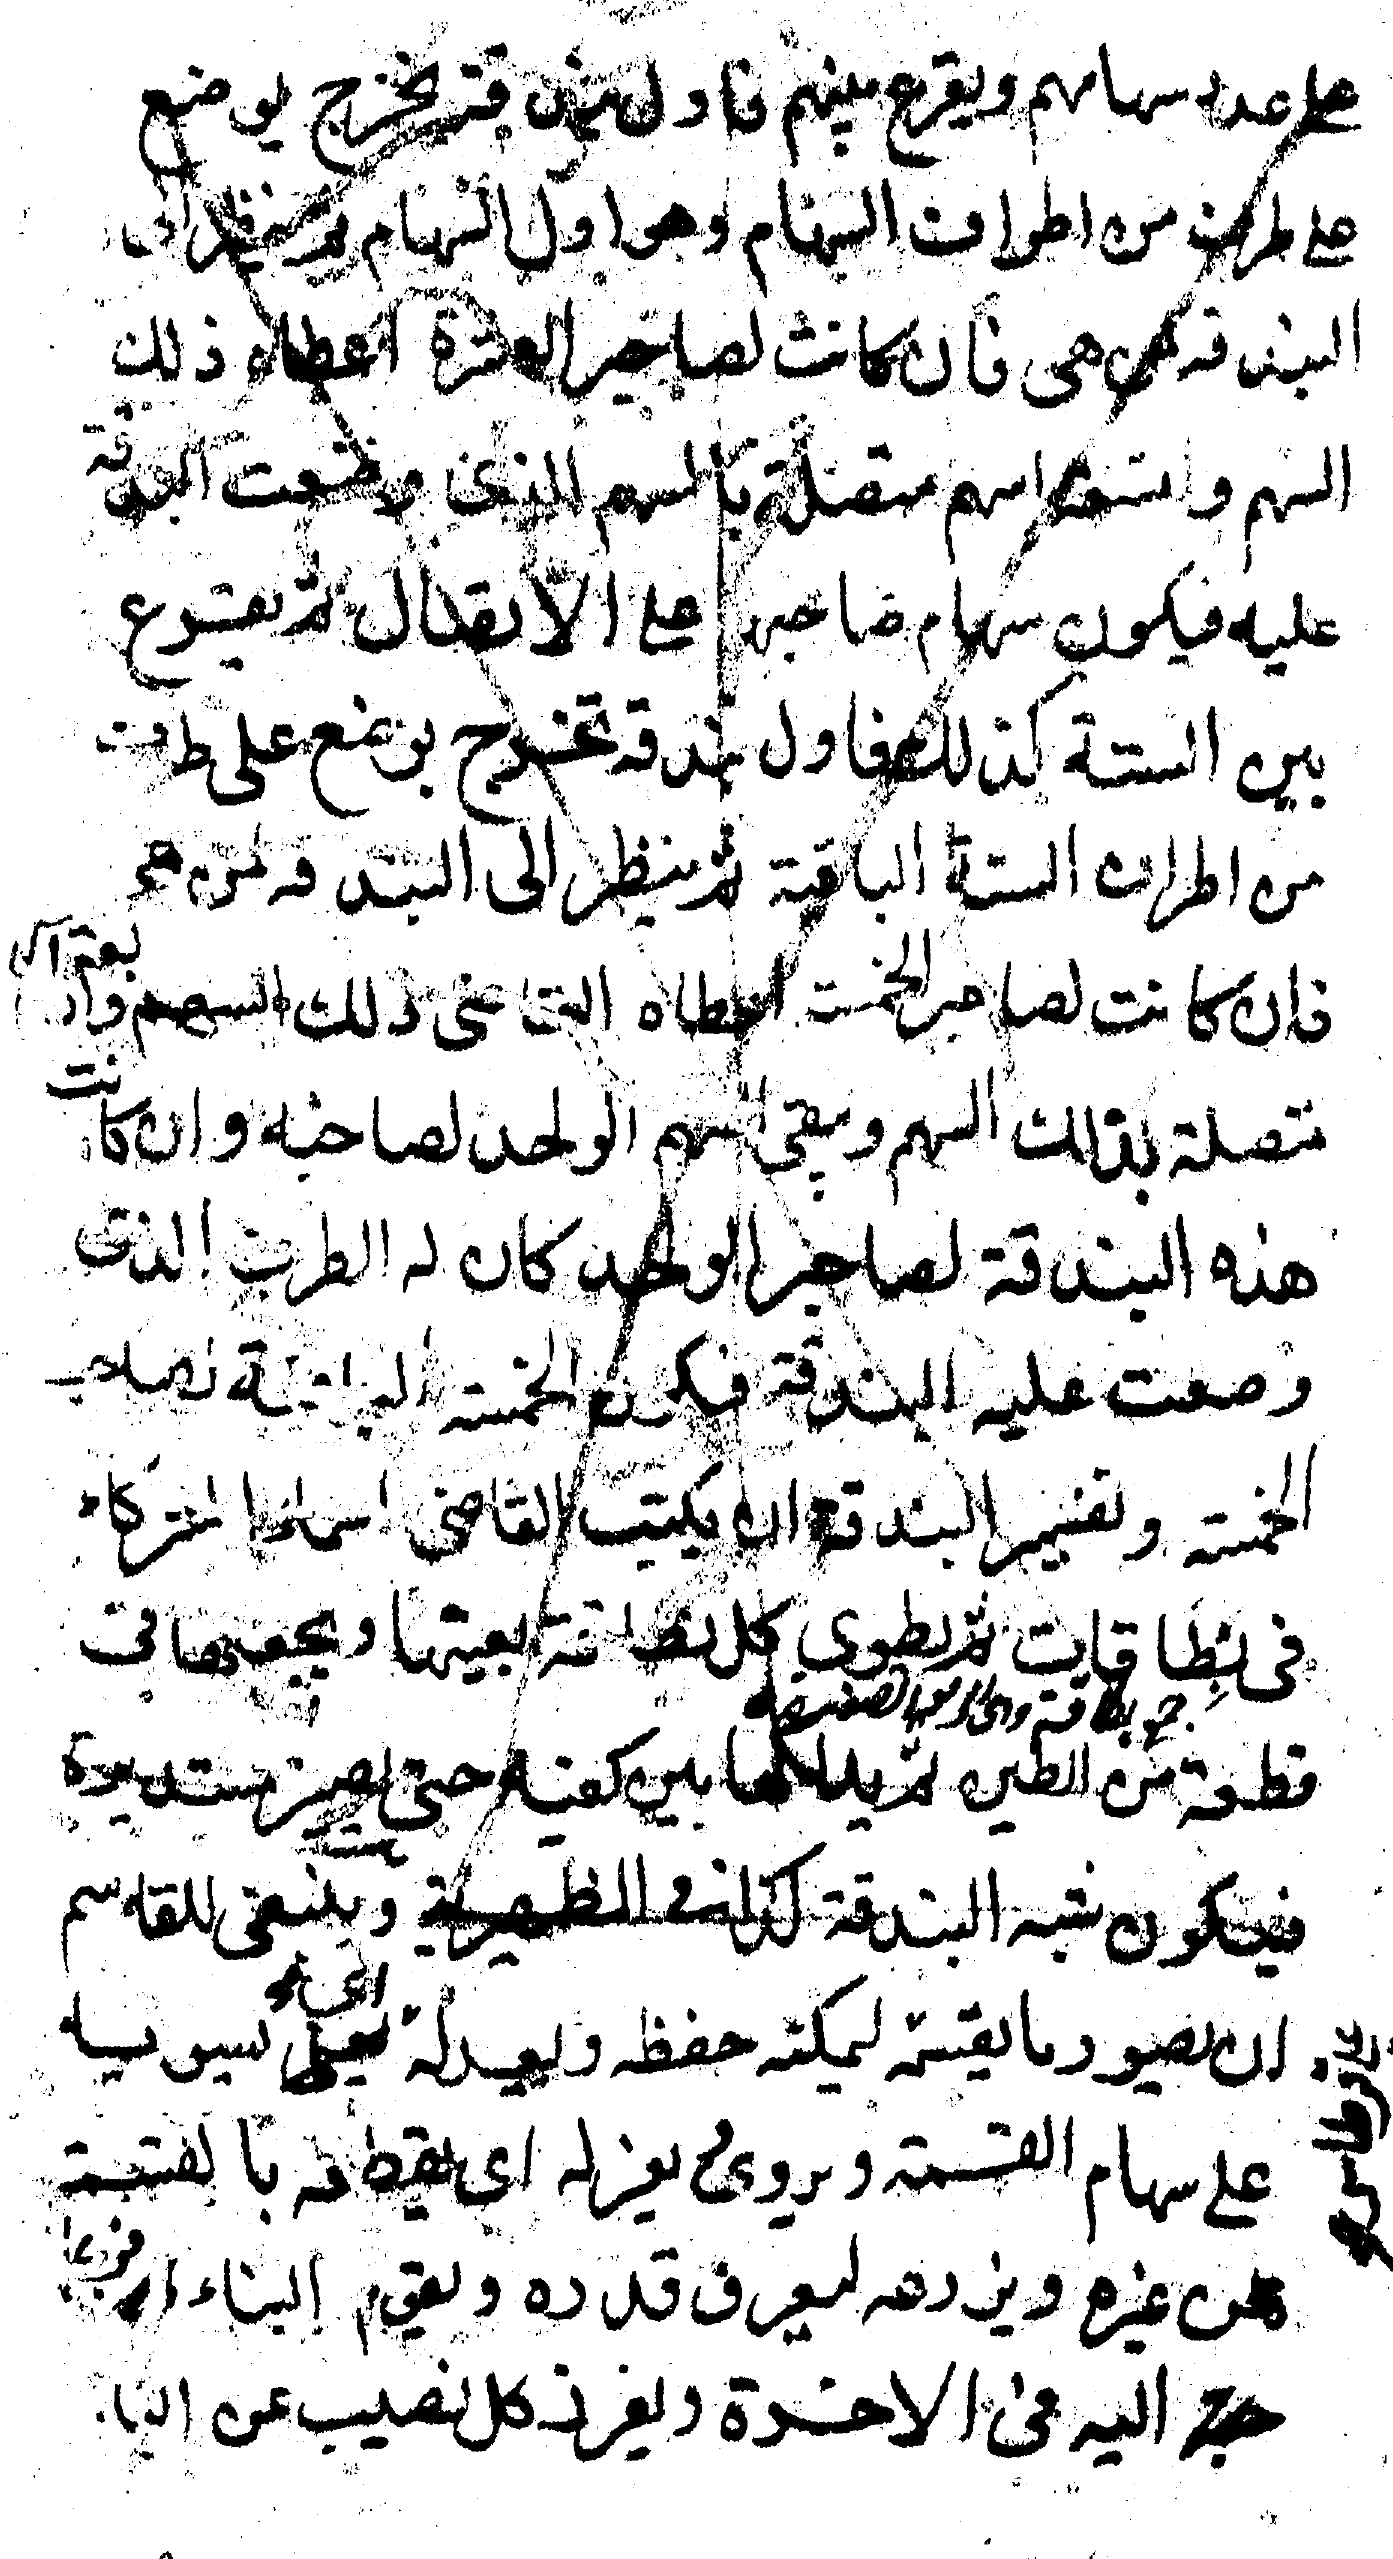 على عدد سهامهم ويقرع بينهم فاول بندقة تخرج يوضع
على طرف من اطراف السهام وهو اول السهام ثم ينظر الى
البندقة لمن هي فان كانت لصاحب العشرة اعطاه ذلك
السهم وتسعة اسهم متصلة بالسهم الذي وضعت البندقة
عليه فيكون سهام صاحبها على الاتصال ثم يقرع
بين الستة كذلك فاول بندقة تخرج يوضع على طرف
من اطراف الستة الباقية ثم ينظر الى البندقة لمن هي
فان كانت لصاحب الخمسة اعطاه القاضي ذلك السهم واربعة اسهم
متصلة بذلك السهم ويبقى السهم الواحد لصاحبه وان كانت
هذه البندقة لصاحب الواحد كان له الطرف الذي
وضعت عليه البندقة فيكون الخمسة الباقية لصاحب
الخمسة وتفسير البندقة ان يكتب القاضي اسماء الشركاء
في بطاقات ثم يطوي كل بطاقة بعينها ويجعلها في
جمع بطاقة وهى
قطعة من الطين ثم يدلكها بين كفيه حتى يصير مستديرة
فيكون شبه البندقة كذا في الظهيرية وينبغي للقاسم
ان يصور ما يقسمه ليمكنه حفظه ويعدله يعني يسويه
على سهام القسمة ويروى يعزله اي يقطعه بالقسمة
عن غيره ويذرعه ليعرف قدره ويقوم البناء
حج اليه في الاخرة ويفرز كل نصيب عن البا